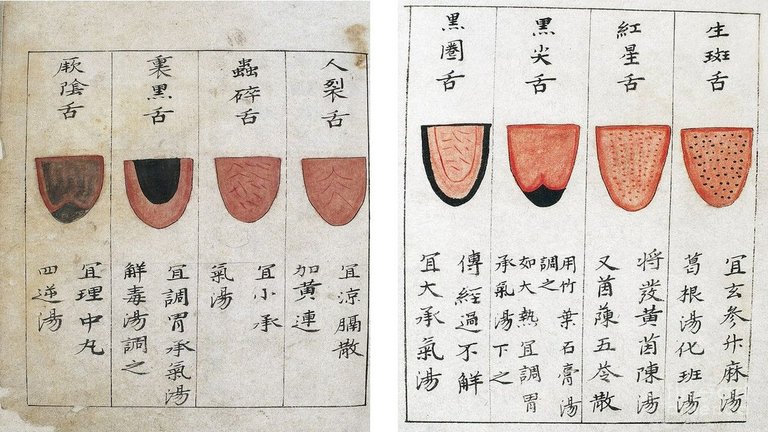 生斑舌
宜玄參升麻湯
葛根湯化班湯
紅星舌
將發黃茵陳湯
又茵蔯五苓散
黑尖舌
用竹葉石膏湯
調之
如大熱宜調胃
承氣湯下之
黑圈舌
傳經過不解
宜大承氣湯
人裂舌
宜涼膈散
加黃連
蟲碎舌
宜小承
氣湯
裏黑舌
宜調胃承氣湯
解毒湯調之
厥陰舌
宜理中丸
四逆湯